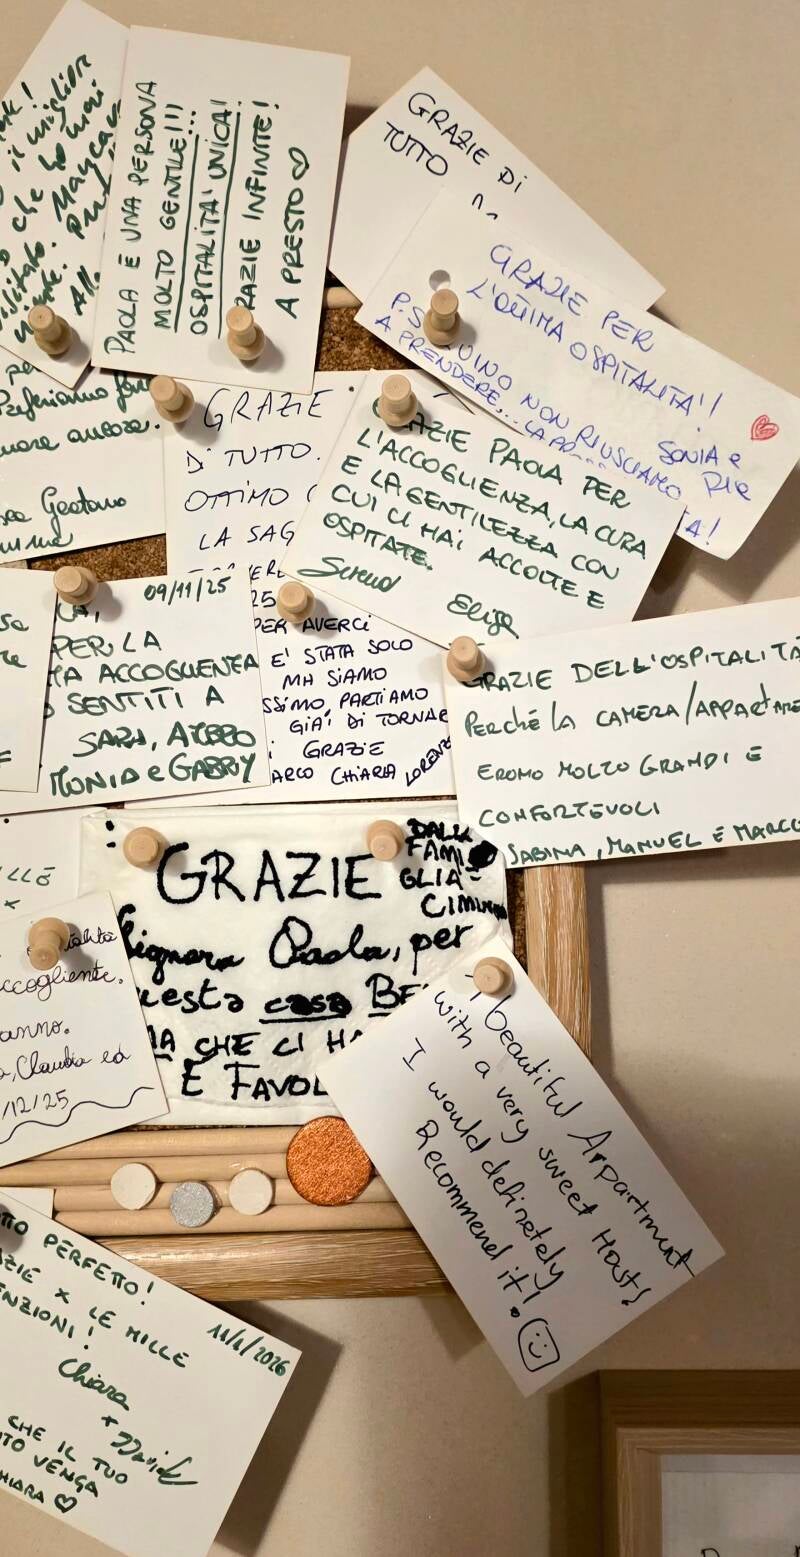 il migliore
che ho mai
PAOLA È UNA PERSONA
MOLTO GENTILE!!!
OSPITALITA' UNICA!
RAZIE INFINITE!
A PRESTO ♡
GRAZIE DI
TUTTO
GRAZIE PER
L'OTTIMA OSPITALITA'!
SONIA e
P.S. VINO NON RIUSCIAMO
A PRENDERE...
TA!
ancora.
Gaetano
GRAZIE
DI TUTTO.
OTTIMO
LA SAG
25
GRAZIE PAOLA PER
L'ACCOGLIENZA, LA CURA
E LA GENTILEZZA CON
CUI CI HAI ACCOLTE E
OSPITATE.
Elisa
09/11/25
PER LA
TA ACCOGLIENZA
SENTITI A
SARA,
MONIA e GABRY
PER AVERCI
E' STATA SOLO
MA SIAMO
SSIMO, PARTIAMO
GIA' DI TORNAR
GRAZIE
ARCO CHIARA LORENZ
GRAZIE DELL'OSPITALITÀ
PERCHÉ LA CAMERA/APPARTAME
ERONO MOLTO GRANDI E
CONFORTEVOLI
SABINA, MANUEL E MARCO
GRAZIE
DALLA
FAMI
GLIA
Signora Paola, per
questa casa BE
MA CHE CI HA
E FAVOL
ccogliente.
anno.
, Claudia ed
/12/25
A beautiful Arpartment
with a very sweet Host!
I would definetely
Recommend it!
TTO PERFETTO!
AZIE X LE MILLE
ENZIONI!
11/1/2026
Chiara
+ Davide
CHE IL TUO
TO VENGA
HIARA ♡